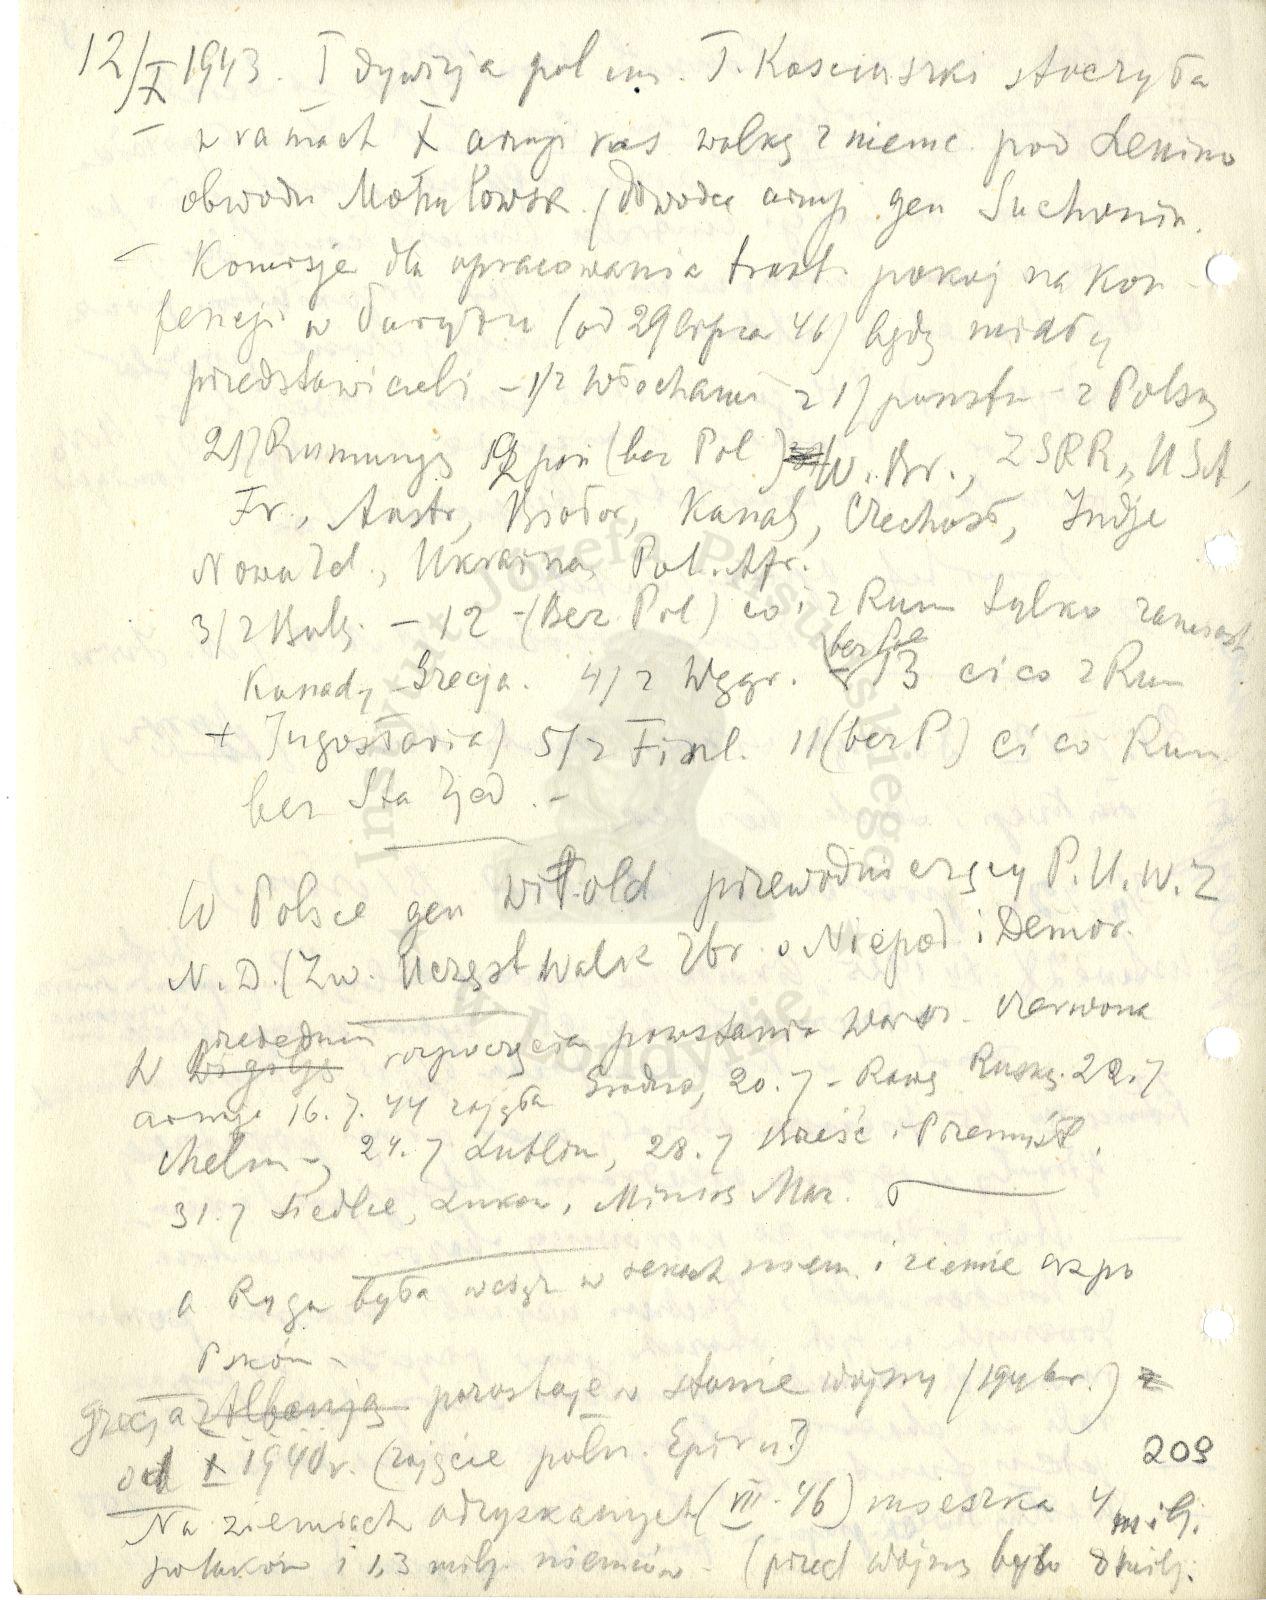 12/X 1943. I dywizja pol im. T. Kosciuszki stoczyła
w ramach X armji ros walkę z niemc. pod Lenino
obwodu Mohyłowsk. (dowódca armji gen Suchonin.
– Komisje dla opracowania trakt. pokoj na kon-
ferencji w Paryżu (od 29 lipca 46) będą miały
przedstawicieli – 1/ z Włochami z 17 państw – z Polską
2/ Rumunją 12 pań (bez Pol) W. Br., ZSRR, USA,
Fr., Austr, Białor, Kanad, Czechosł, Indje
Nowa Zel., Ukraina, Poł. Afr.
3/ z Bułg. – 12 – (Bez Pol) co i z Rum tylko zamiast
Kanady – Grecja. 4/ z Węgr. bez Pol 13 ci co z Rum
+ Jugosławia) 5/ z Finl. 11 (bez P) ci co Rum
bez Sta Zjed. –
W Polsce gen Witold przewodniczący P.U.W.Z
N.D. (Zw. Uczest Walk Zbr. o Niepod i Demok.
W przededniu rozpoczęcia powstania Warsz. czerwona
armja 16.7.44 zajęła Grodno, 20.7 – Rawę Ruską. 22.7
Chełm –, 24.7 Lublin, 28.7 Brześć i Przemyśl,
31.7 Siedlce, Łuków, Mińsk Maz.
a Ryga była wciąż w rękach niem. i ziemie aż po
Psków –
Grecja z Albanją pozostaje w stanie wojny (1946 r.)
od X 1940 r. (zajęcie połn. Epiru?)
209
Na ziemiach odzyskanych (VII. 46) mieszka 4 milj.
polaków i 1,3 milj. niemców – (przed wojną było 8 milj.
Instytut Józefa Piłsudskiego
w Londynie